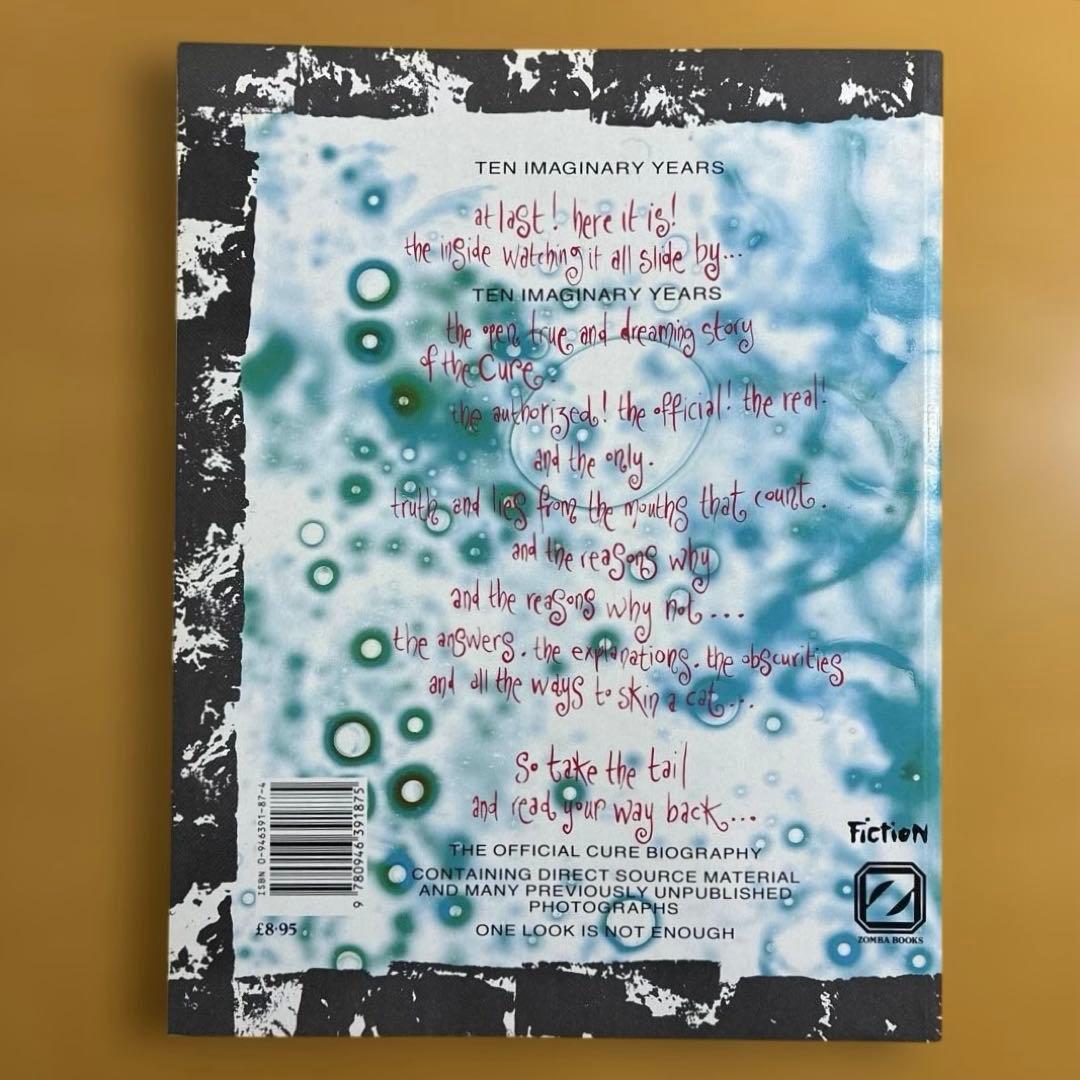 TEN IMAGINARY YEARS
at last! here it is!
the inside watching it all slide by...
TEN IMAGINARY YEARS
the open true and dreaming story
of the Cure.
the authorized! the official! the real!
and the only.
truth and lies from the mouths that count.
and the reasons why
and the reasons why not...
the answers. the explanations. the obscurities
and all the ways to skin a cat...
So take the tail
and read your way back...
THE OFFICIAL CURE BIOGRAPHY
CONTAINING DIRECT SOURCE MATERIAL
AND MANY PREVIOUSLY UNPUBLISHED
PHOTOGRAPHS
ONE LOOK IS NOT ENOUGH
ISBN 0-946391-87-4
9 780946 391875
£8·95
FicTioN
ZOMBA BOOKS